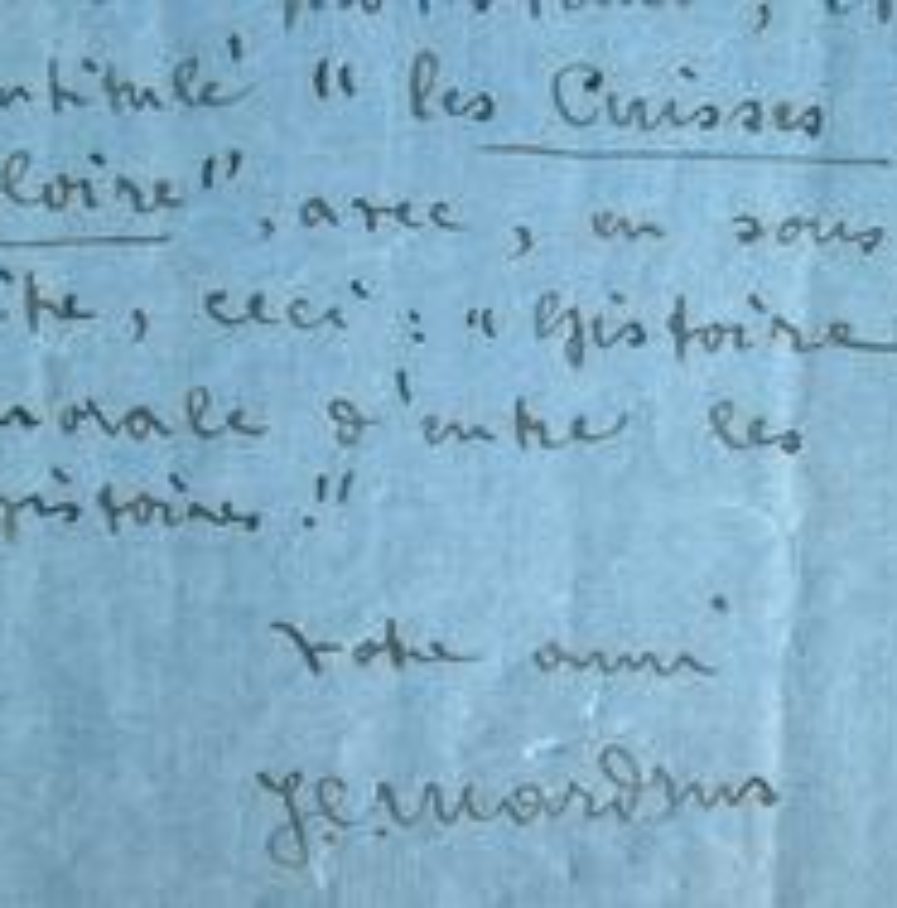 ntitulé " les Cuisses
loire", avec, en sous
itre, ceci : " Histoire
morale d'entre les
histoires !"
votre ami
J.C. Mardrus